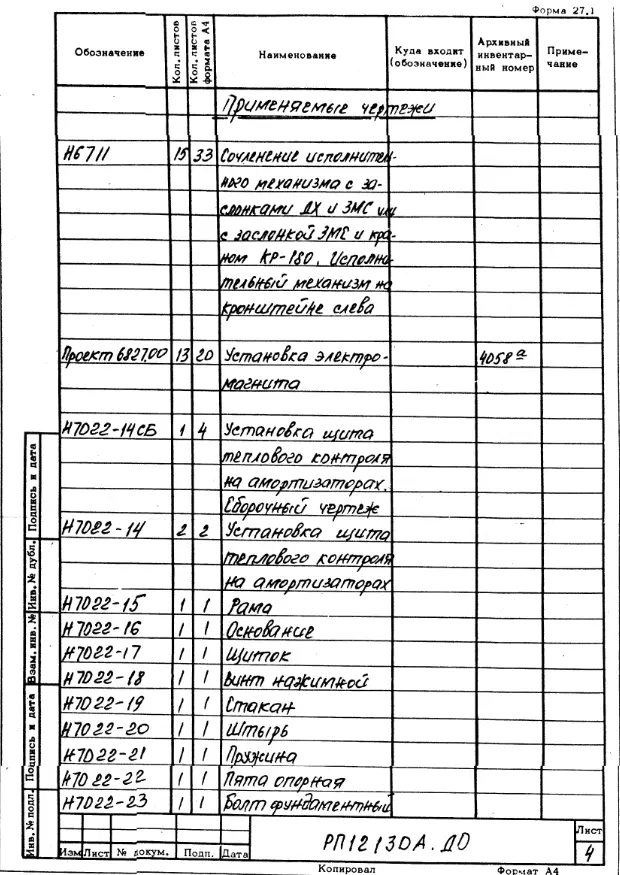 Форма 27.1
Обозначение Кол. листов Кол. листов формата А4 Наименование Куда входит (обозначение) Архивный инвентарный номер Примечание
Применяемые чертежи
Н6711 15 33 Сочленение исполнитель-
ного механизма с за-
слонками ДХ и ЗМС или
с заслонкой ЗМС и кра-
ном КР-180. Исполни-
тельный механизм на
кронштейне слева
Проект 6827.00 13 20 Установка электро- 4058а
магнита
Н7022-14СБ 1 4 Установка щита
теплового контроля
на амортизаторах.
Сборочный чертеж
Н7022-14 2 2 Установка щита
теплового контроля
на амортизаторах
Н7022-15 1 1 Рама
Н7022-16 1 1 Основание
Н7022-17 1 1 Щиток
Н7022-18 1 1 Винт нажимной
Н7022-19 1 1 Стакан
Н7022-20 1 1 Штырь
Н7022-21 1 1 Пружина
Н7022-22 1 1 Пята опорная
Н7022-23 1 1 Болт фундаментный
Подпись и дата
Инв. № дубл.
Взам. инв. №
Подпись и дата
Инв. № подл.
Изм Лист № докум. Подп. Дата
РП12130А.Д0
Лист
4
Копировал Формат А4